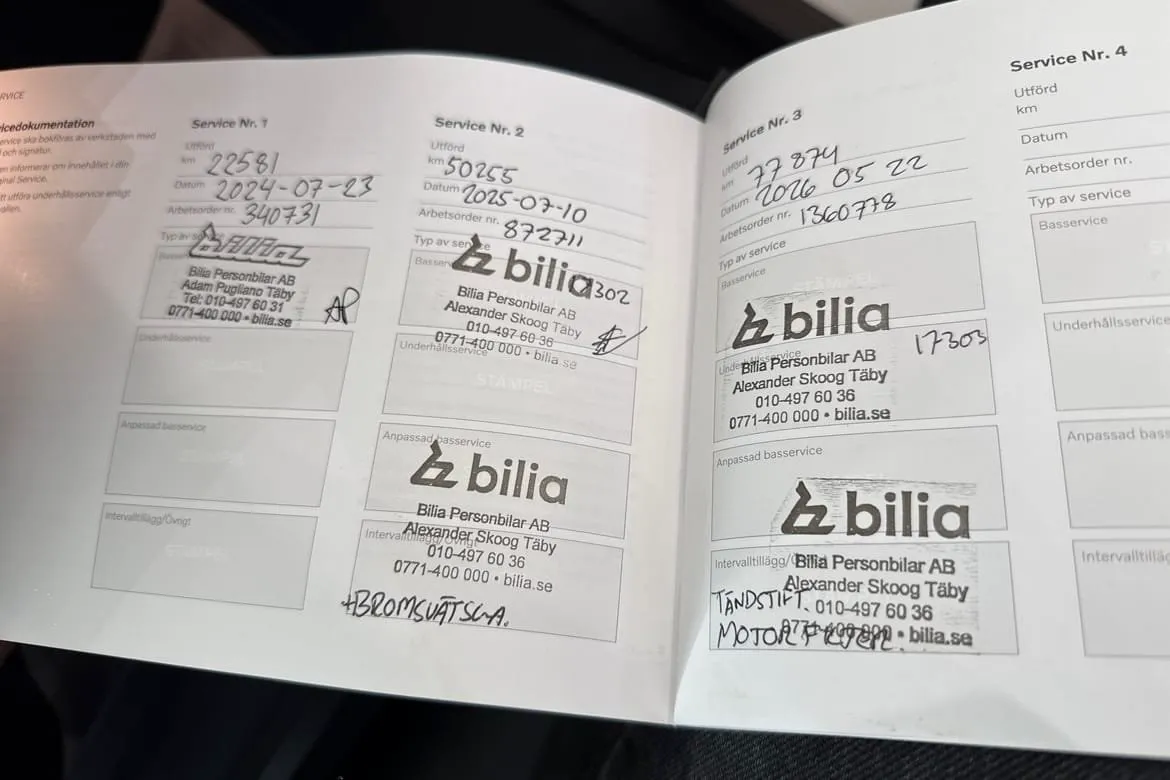 RVICE
icedokumentation
ervice ska bokföras av verkstaden med
och signatur.
en informerar om innehållet i din
inal Service.
tt utföra underhållsservice enligt
allen.
Service Nr. 1
Utförd
km 22581
Datum 2024-07-23
Arbetsorder nr. 340731
Typ av
Bilia Personbilar AB
Adam Pugliano Täby
Tel: 010-497 60 31
0771-400 000 • bilia.se
AP
Underhållsservice
Anpassad basservice
Intervalltillägg/Övrigt
Service Nr. 2
Utförd
km 50255
Datum 2025-07-10
Arbetsorder nr. 872711
Typ av se
Basser
bilia 302
Bilia Personbilar AB
Alexander Skoog Täby
010-497 60 36
0771-400 000 • bilia.se
Underhållsservice
STÄMPEL
Anpassad basservice
bilia
Bilia Personbilar AB
Alexander Skoog Täby
Intervalltillägg/Övrigt
010-497 60 36
0771-400 000 • bilia.se
+BROMSVÄTSKA.
Service Nr. 3
Utförd
km 77874
Datum 2026 05 22
Arbetsorder nr. 1360778
Typ av service
Basservice
bilia
17303
Underhållsservice
Bilia Personbilar AB
Alexander Skoog Täby
010-497 60 36
0771-400 000 • bilia.se
Anpassad basservice
bilia
Intervalltillägg/
Bilia Personbilar AB
Alexander Skoog Täby
TÄNDSTIFT. 010-497 60 36
MOTOR FILTER. 0771-400 000 • bilia.se
Service Nr. 4
Utförd
km
Datum
Arbetsorder nr.
Typ av service
Basservice
Underhållsservice
Anpassad bass
Intervalltilläg